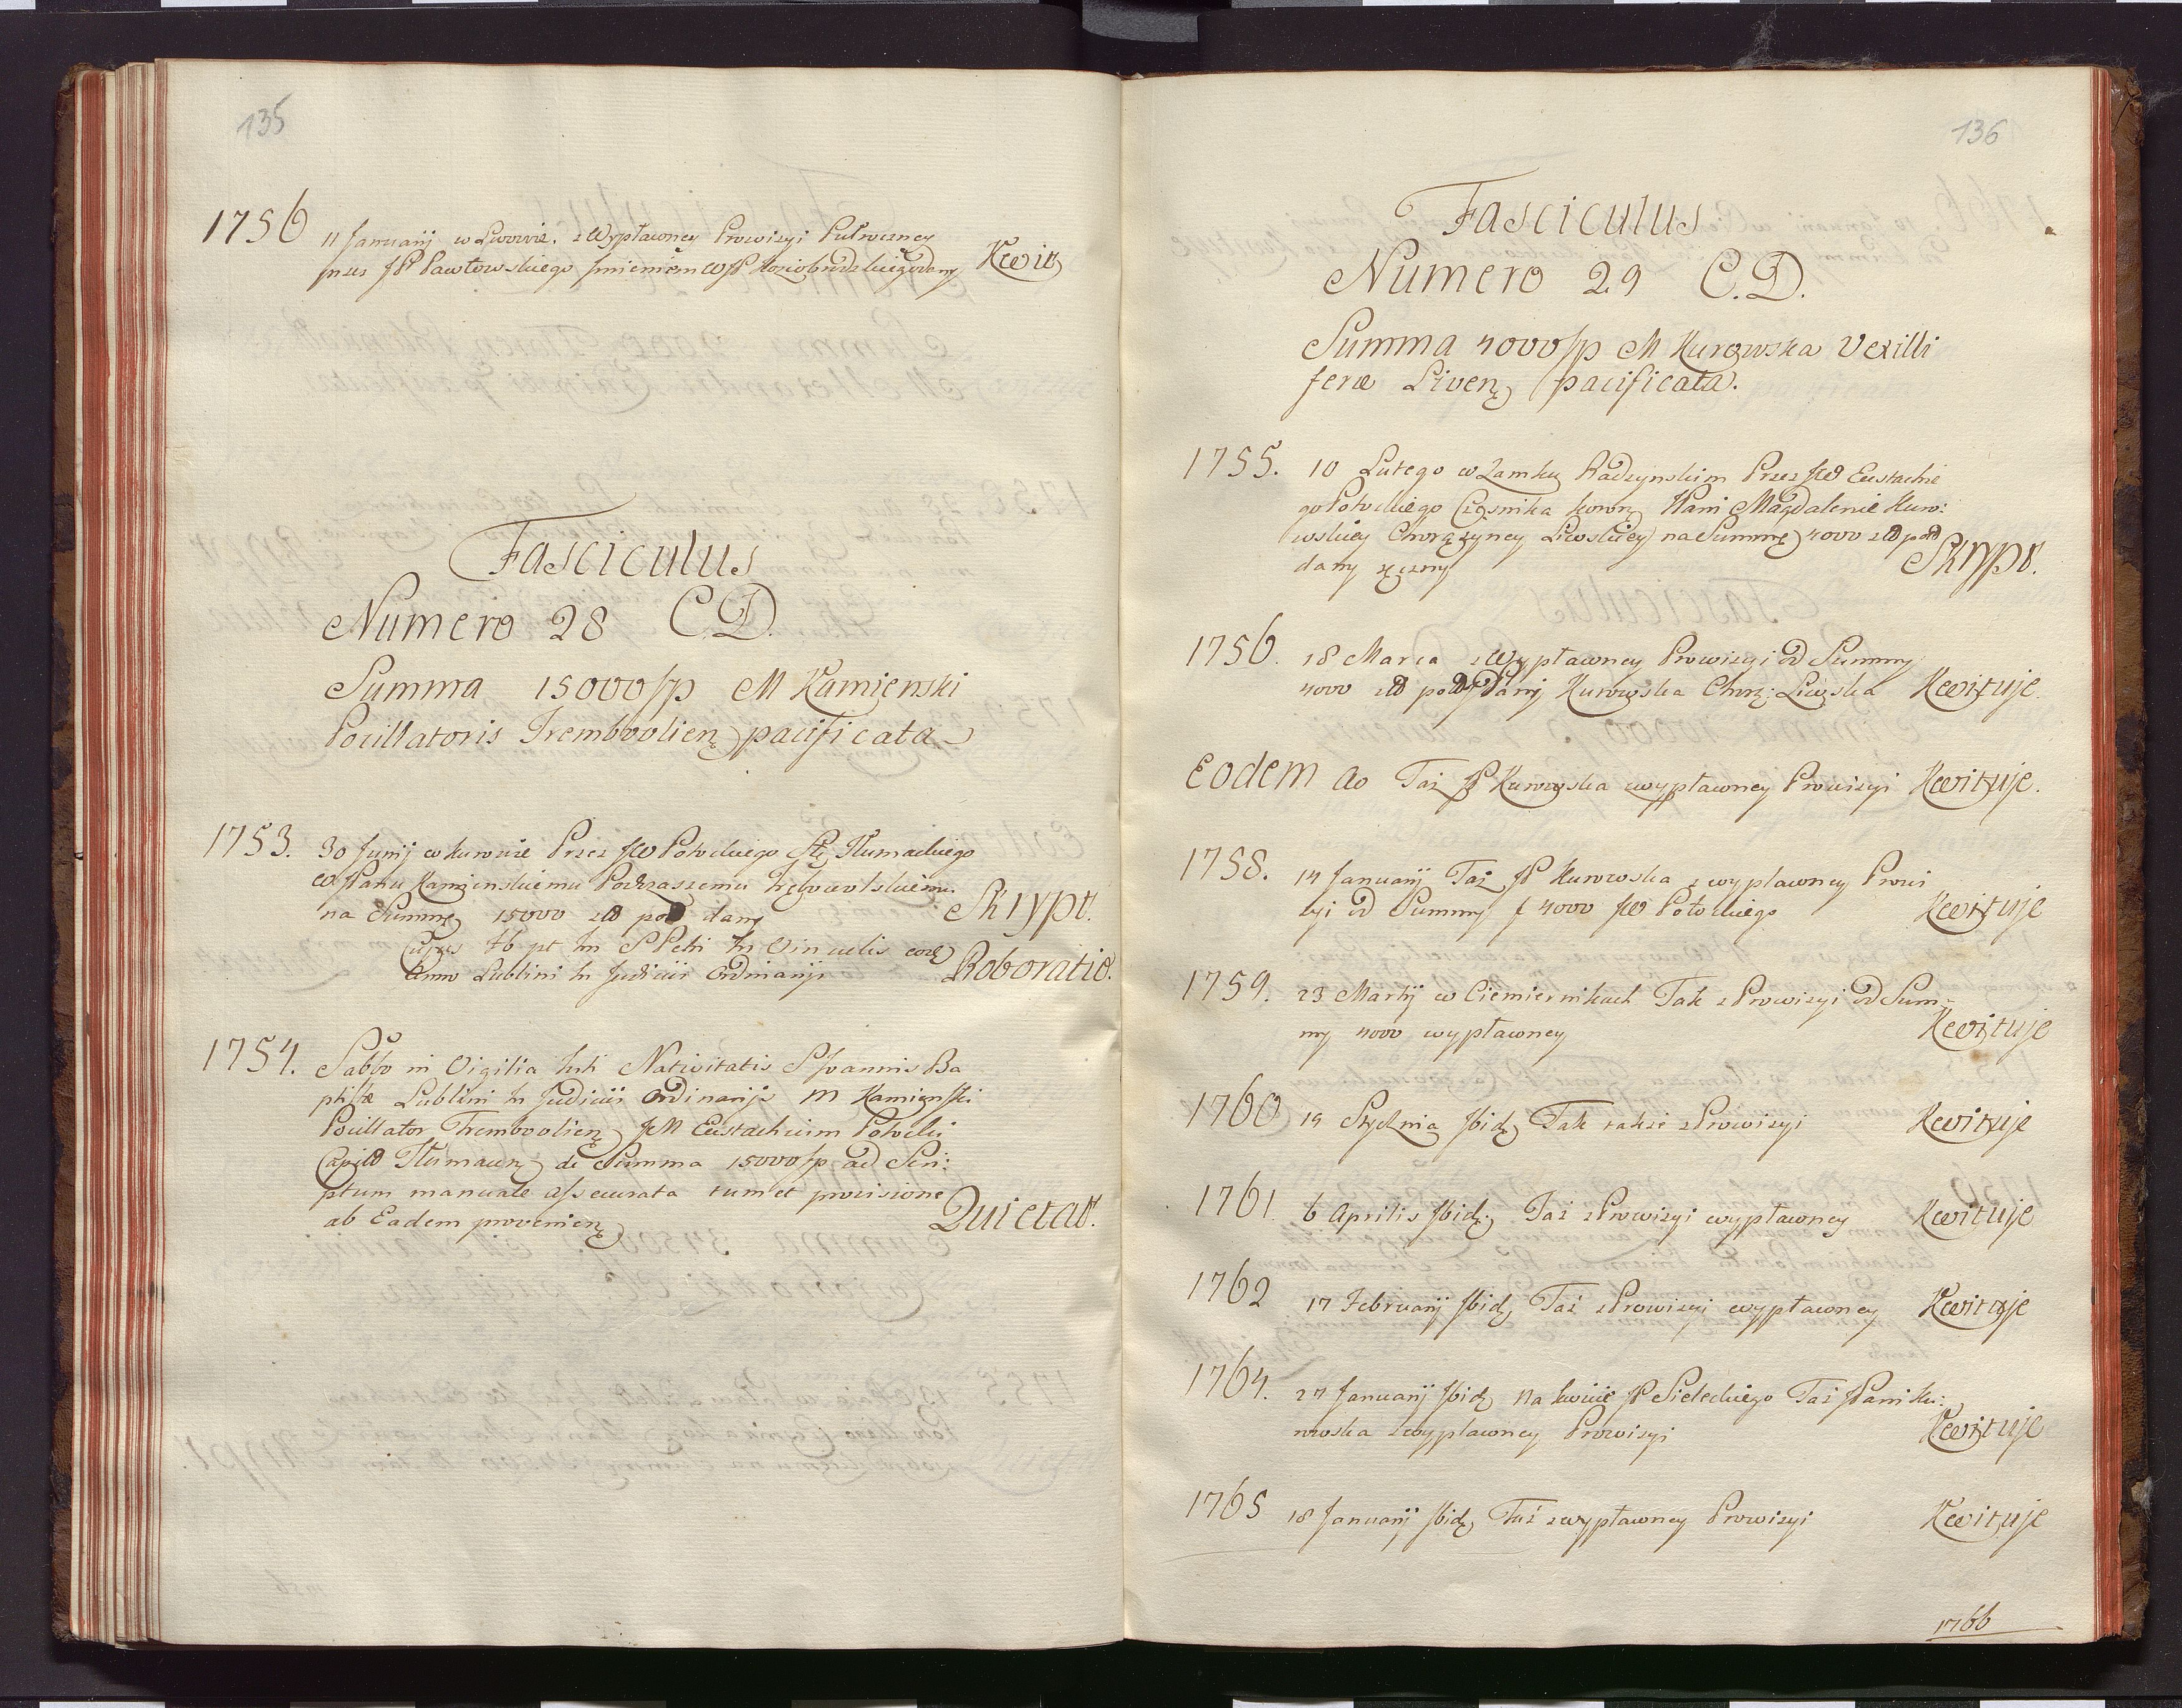 135
1756 11 Januarij w Lwowie. z Wypłaconey Prowizyi Pułroczney
przez JP Pawłowskiego Jmieniem WJP Koziobrodzkiego dany Kwit
Fasciculus
Numero 28 C.D.
Summa 15000 fp M Kamienski
Pocillatoris Trembovolien pacificata
1753. 30 Junij w Kurowie Przez JW Potockiego Stę Tłumackiego
WJPanu Kamienskiemu Podczaszemu Trębowolskiemu
na Summę 15000 zł pol dany Skrypt.
pt in S Petri in Vinculis
Anno Lublini in Judiciis Ordinarijs Roboratio.
1754. Sabbo in Vigilia festi Nativitatis S Joannis Ba
ptistæ Lublini in Judiciis Ordinarijs M Kamienski
Pocillator Trembovolien JM Eustachium Potocki
Capitt Tłumacen de Summa 15000 fp ad Scri:
ptum manuale assecurata tum et provisione
ab Eadem provenien Quietat.
136
Fasciculus
Numero 29 C.D.
Summa 4000 fp M Kurowska Vexilli
feræ Liven pacificata.
1755. 10 Lutego w Zamku Radzynskim Przez JW Eustachie
go Potockiego Cześnika koronn JPani Magdalenie Kuro:
wskiey Chorążyney Liwskiey na Summę 4000 zł pol
dany ręczny Skrypt.
1756. 18 Marca z Wypłaconey Prowizyi od Summy
4000 zł pol JPani Kurowska Chorą: Liwska Kwituje.
Eodem ao Taż JP Kurowska wypłaconey Prowizyi Kwituje.
1758. 14 Januarij Taż JP Kurowska z wypłaconey Prowi
zyi od Summy f 4000 JW Potockiego Kwituje
1759. 23 Martij w Ciemiernikach Tak z Prowizyi od Sum-
my 4000 wypłaconey Kwituje
1760 19 Stycznia Ibid Tak także z Prowizyi Kwituje
1761 6 Aprilis Ibid Taż z Prowizyi wypłaconey Kwituje
1762 17 Februarij Ibid Taż z Prowizyi wypłaconey Kwituje
1764. 27 Januarij Ibid Na kwicie JP Sieleckiego Taż JPani Ku:
rowska z wypłaconey Prowizyi Kwituje
1765 18 Januarij Ibid Taż z wypłaconey Prowizyi Kwituje
1766